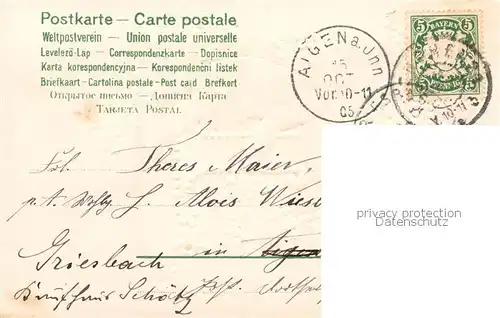 Postkarte — Carte postale
Weltpostverein — Union postale universelle
Levelező-Lap — Correspondenzkarte — Dopisnice
Karta korespondencyjna — Korespondenční lístek
Briefkaart - Cartolina postale - Post card - Brefkort
Открытое письмо — Дописна Карта
TARJETA POSTAL
BAYERN
5 5
AIGEN a. Jnn
15
OCT
Vor. 10-11
05
Frl. Theres Maier,
p. t. Wolfg. L. Alois
in Aigen
Griesbach
privacy protection
Datenschutz